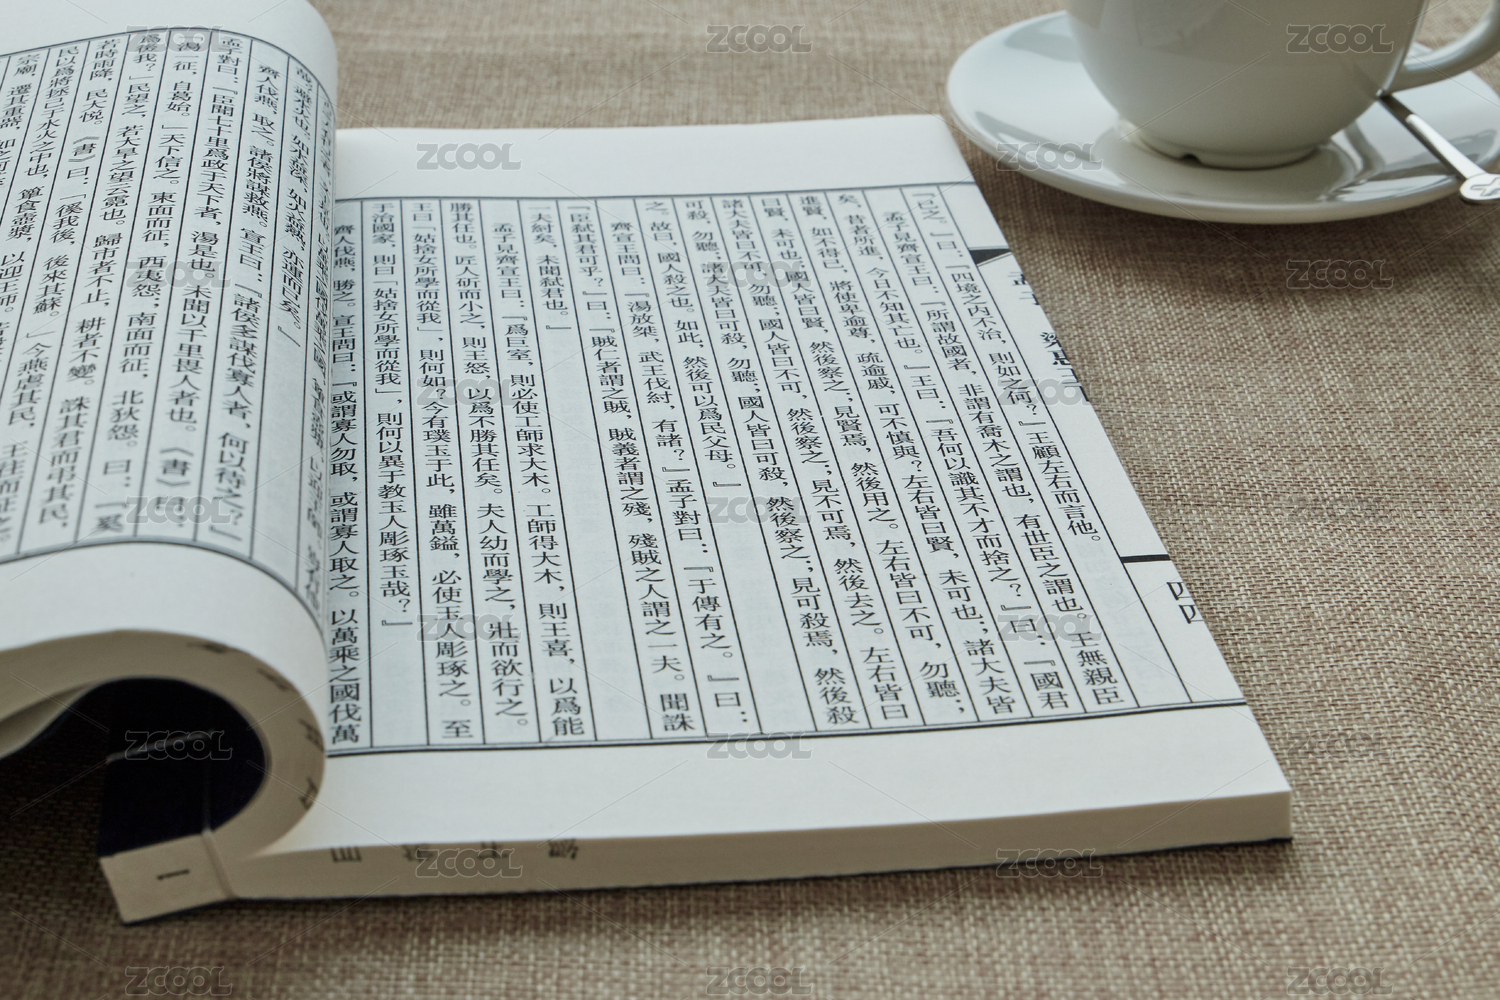 孟子
四四
『已之。』曰：『四境之內不治，則如之何？』王顧左右而言他。
孟子見齊宣王曰：『所謂故國者，非謂有喬木之謂也，有世臣之謂也。王無親臣
矣，昔者所進，今日不知其亡也。』王曰：『吾何以識其不才而捨之？』曰：『國君
進賢，如不得已，將使卑逾尊，疏逾戚，可不慎與？左右皆曰賢，未可也；諸大夫皆
曰賢，未可也；國人皆曰賢，然後察之；見賢焉，然後用之。左右皆曰不可，勿聽；
諸大夫皆曰不可，勿聽；國人皆曰不可，然後察之；見不可焉，然後去之。左右皆曰
可殺，勿聽；諸大夫皆曰可殺，勿聽；國人皆曰可殺，然後察之；見可殺焉，然後殺
之。故曰，國人殺之也。如此，然後可以爲民父母。』
齊宣王問曰：『湯放桀，武王伐紂，有諸？』孟子對曰：『于傳有之。』曰：
『臣弑其君可乎？』曰：『賊仁者謂之賊，賊義者謂之殘，殘賊之人謂之一夫。聞誅
一夫紂矣，未聞弑君也。』
孟子見齊宣王曰：『爲巨室，則必使工師求大木。工師得大木，則王喜，以爲能
勝其任也。匠人斫而小之，則王怒，以爲不勝其任矣。夫人幼而學之，壯而欲行之。
王曰「姑捨女所學而從我」，則何如？今有璞玉于此，雖萬鎰，必使玉人彫琢之。至
于治國家，則曰「姑捨女所學而從我」，則何以異于教玉人彫琢玉哉？』
齊人伐燕，勝之。宣王問曰：『或謂寡人勿取，或謂寡人取之。以萬乘之國伐萬
如水益深，如火益熱，亦運而已矣。』
齊人伐燕，取之。諸侯將謀救燕。宣王曰：『諸侯多謀伐寡人者，何以待之？』
孟子對曰：『臣聞七十里爲政于天下者，湯是也。未聞以千里畏人者也。《書》曰：
「湯一征，自葛始。」天下信之。東面而征，西夷怨；南面而征，北狄怨。曰：「奚
爲後我？」民望之，若大旱之望雲霓也。歸市者不止，耕者不變。誅其君而弔其民，
若時雨降，民大悅。《書》曰：「徯我後，後來其蘇。」今燕虐其民，王往而征之。
民以爲將拯己于水火之中也，簞食壺漿，以迎王師。
宗廟，遷其重器，如之何
ZCOOL